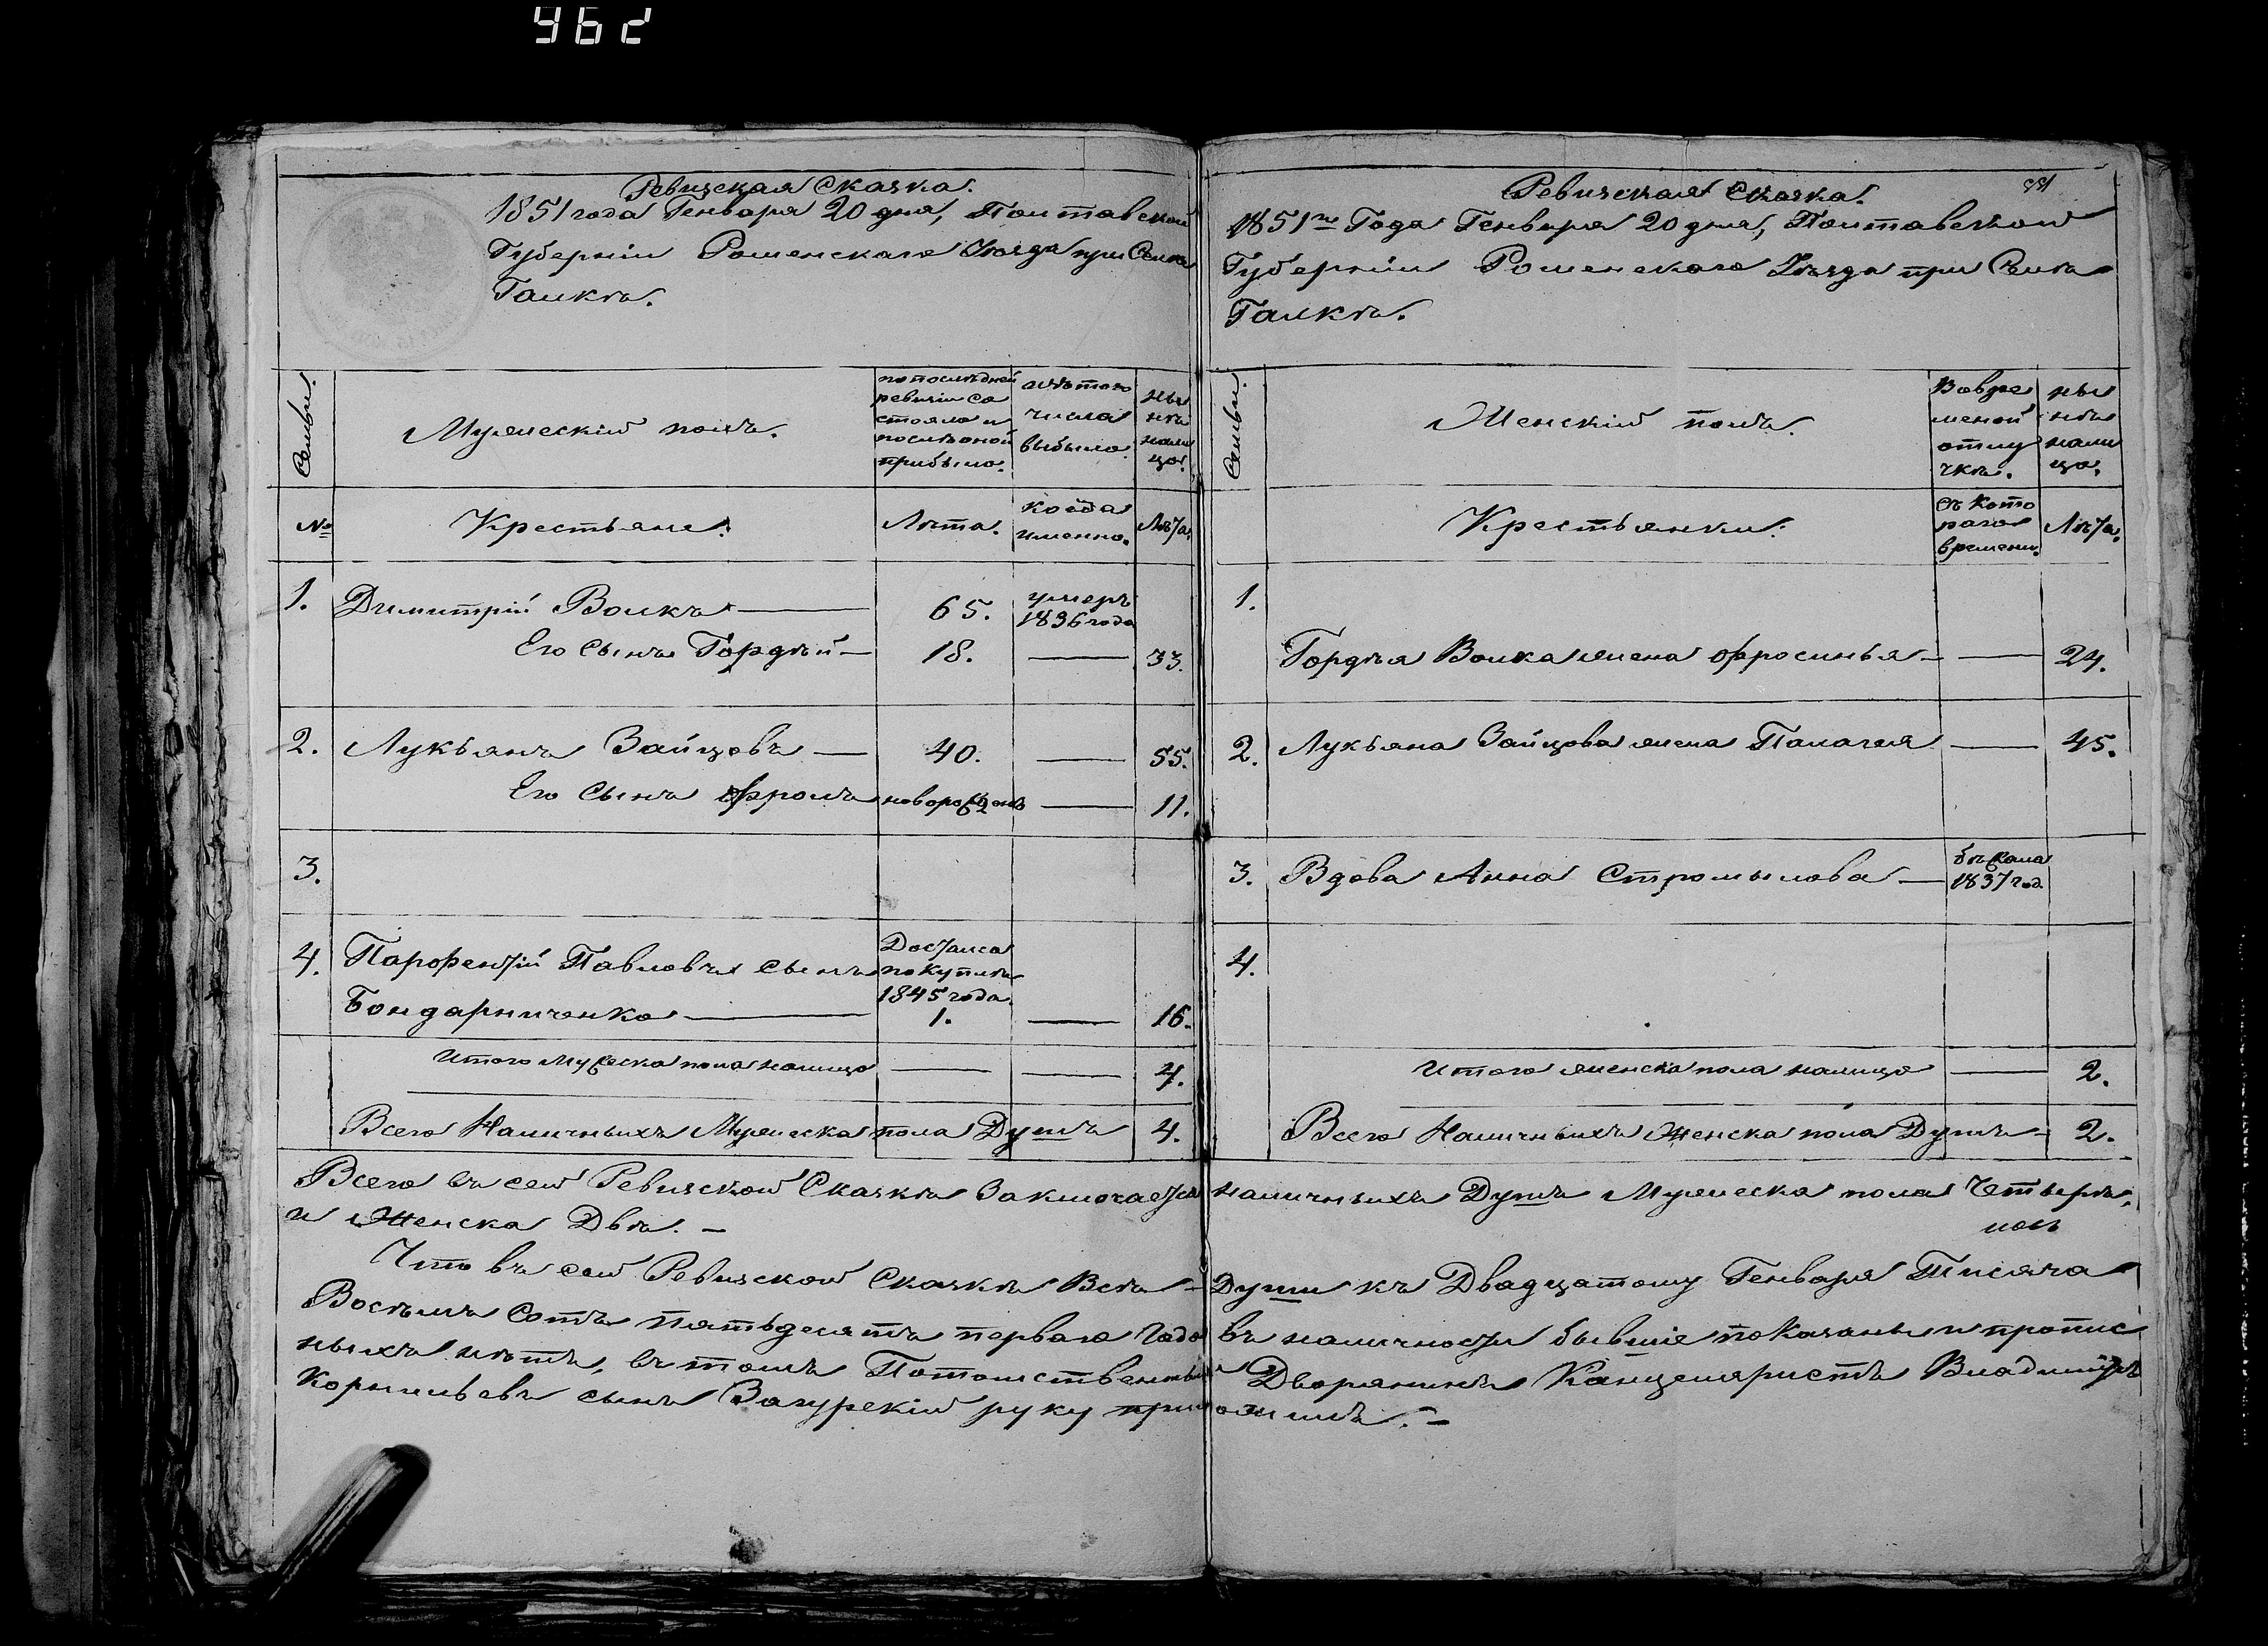 962
Ревизская Сказка.
1851 года Генваря 20 дня, Полтавской
Губерніи Роменскаго Уѣзда при Селѣ
Галкѣ.
Семьи.
Мужескій полъ.
по послѣдней ревизіи состояло и послѣ оной прибыло.
изъ того числа выбыло.
нынѣ на лицо.
№
Крестьяне:
Лѣта.
когда именно.
Лѣта.
1. Димитрій Волкъ — 65. умеръ 1836 года
Его Сынъ Гордѣй — 18. — 33.
2. Лукьянъ Зайцовъ — 40. — 55.
Его Сынъ Офромъ новорожденъ — 11.
3.
4. Парфентій Павловъ сынъ Достался покупкѣ
Бондарниченко — 1845 года 1. — 16.
Итого Мужеска пола налицо — — 4.
Всего Наличныхъ Мужеска пола Душъ 4.
Ревизская Сказка.
1851го Года Генваря 20 дня, Полтавской
Губерніи Роменскаго Уѣзда при Селѣ
Галкѣ.
Семьи.
Женскій полъ.
Во временой отлучкѣ.
нынѣ на лицо.
Крестьянки:
Съ котораго времени.
Лѣта.
1.
Гордѣя Волка жена Офросинья — — 24.
2. Лукьяна Зайцова жена Палагея — 45.
3. Вдова Анна Стромылова — бѣжала 1837 год.
4.
Итого женска пола налицо — 2.
Всего Наличныхъ Женска пола Душъ — 2.
Всего въ сей Ревизской Сказкѣ Заключается наличныхъ Душъ Мужеска пола Четыре,
и Женска Двѣ. —
Что въ сей Ревизской Сказкѣ Всѣ — Души къ Двадцатому Генваря Тысяча
Восемь Сотъ пятьдесятъ перваго Года въ наличности бывшіе показаны и пропис
ныхъ нѣтъ, въ томъ Потомственный Дворянинъ Канцеляристъ Владиміръ
Корнильевъ сынъ Загурскій руку приложилъ. —